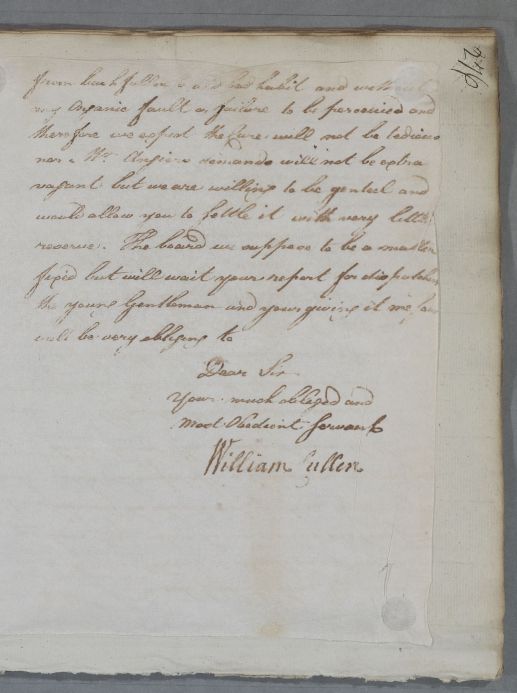 from bashfullness and bad habit and without
any Organic fault or failure to be perceived and
therefore we expect the cure will not be tedious
nor Mr. Angiers demands will not be extra
vagant but we are willing to be genteel and
would allow you to settle it with very little
reserve. The board we suppose to be a matter
fixed but will wait your report for dispatching
the young Gentleman and your giving it me soon
will be very obliging to
Dear Sir
Your much obliged and
most Obedient Servant
William Cullen